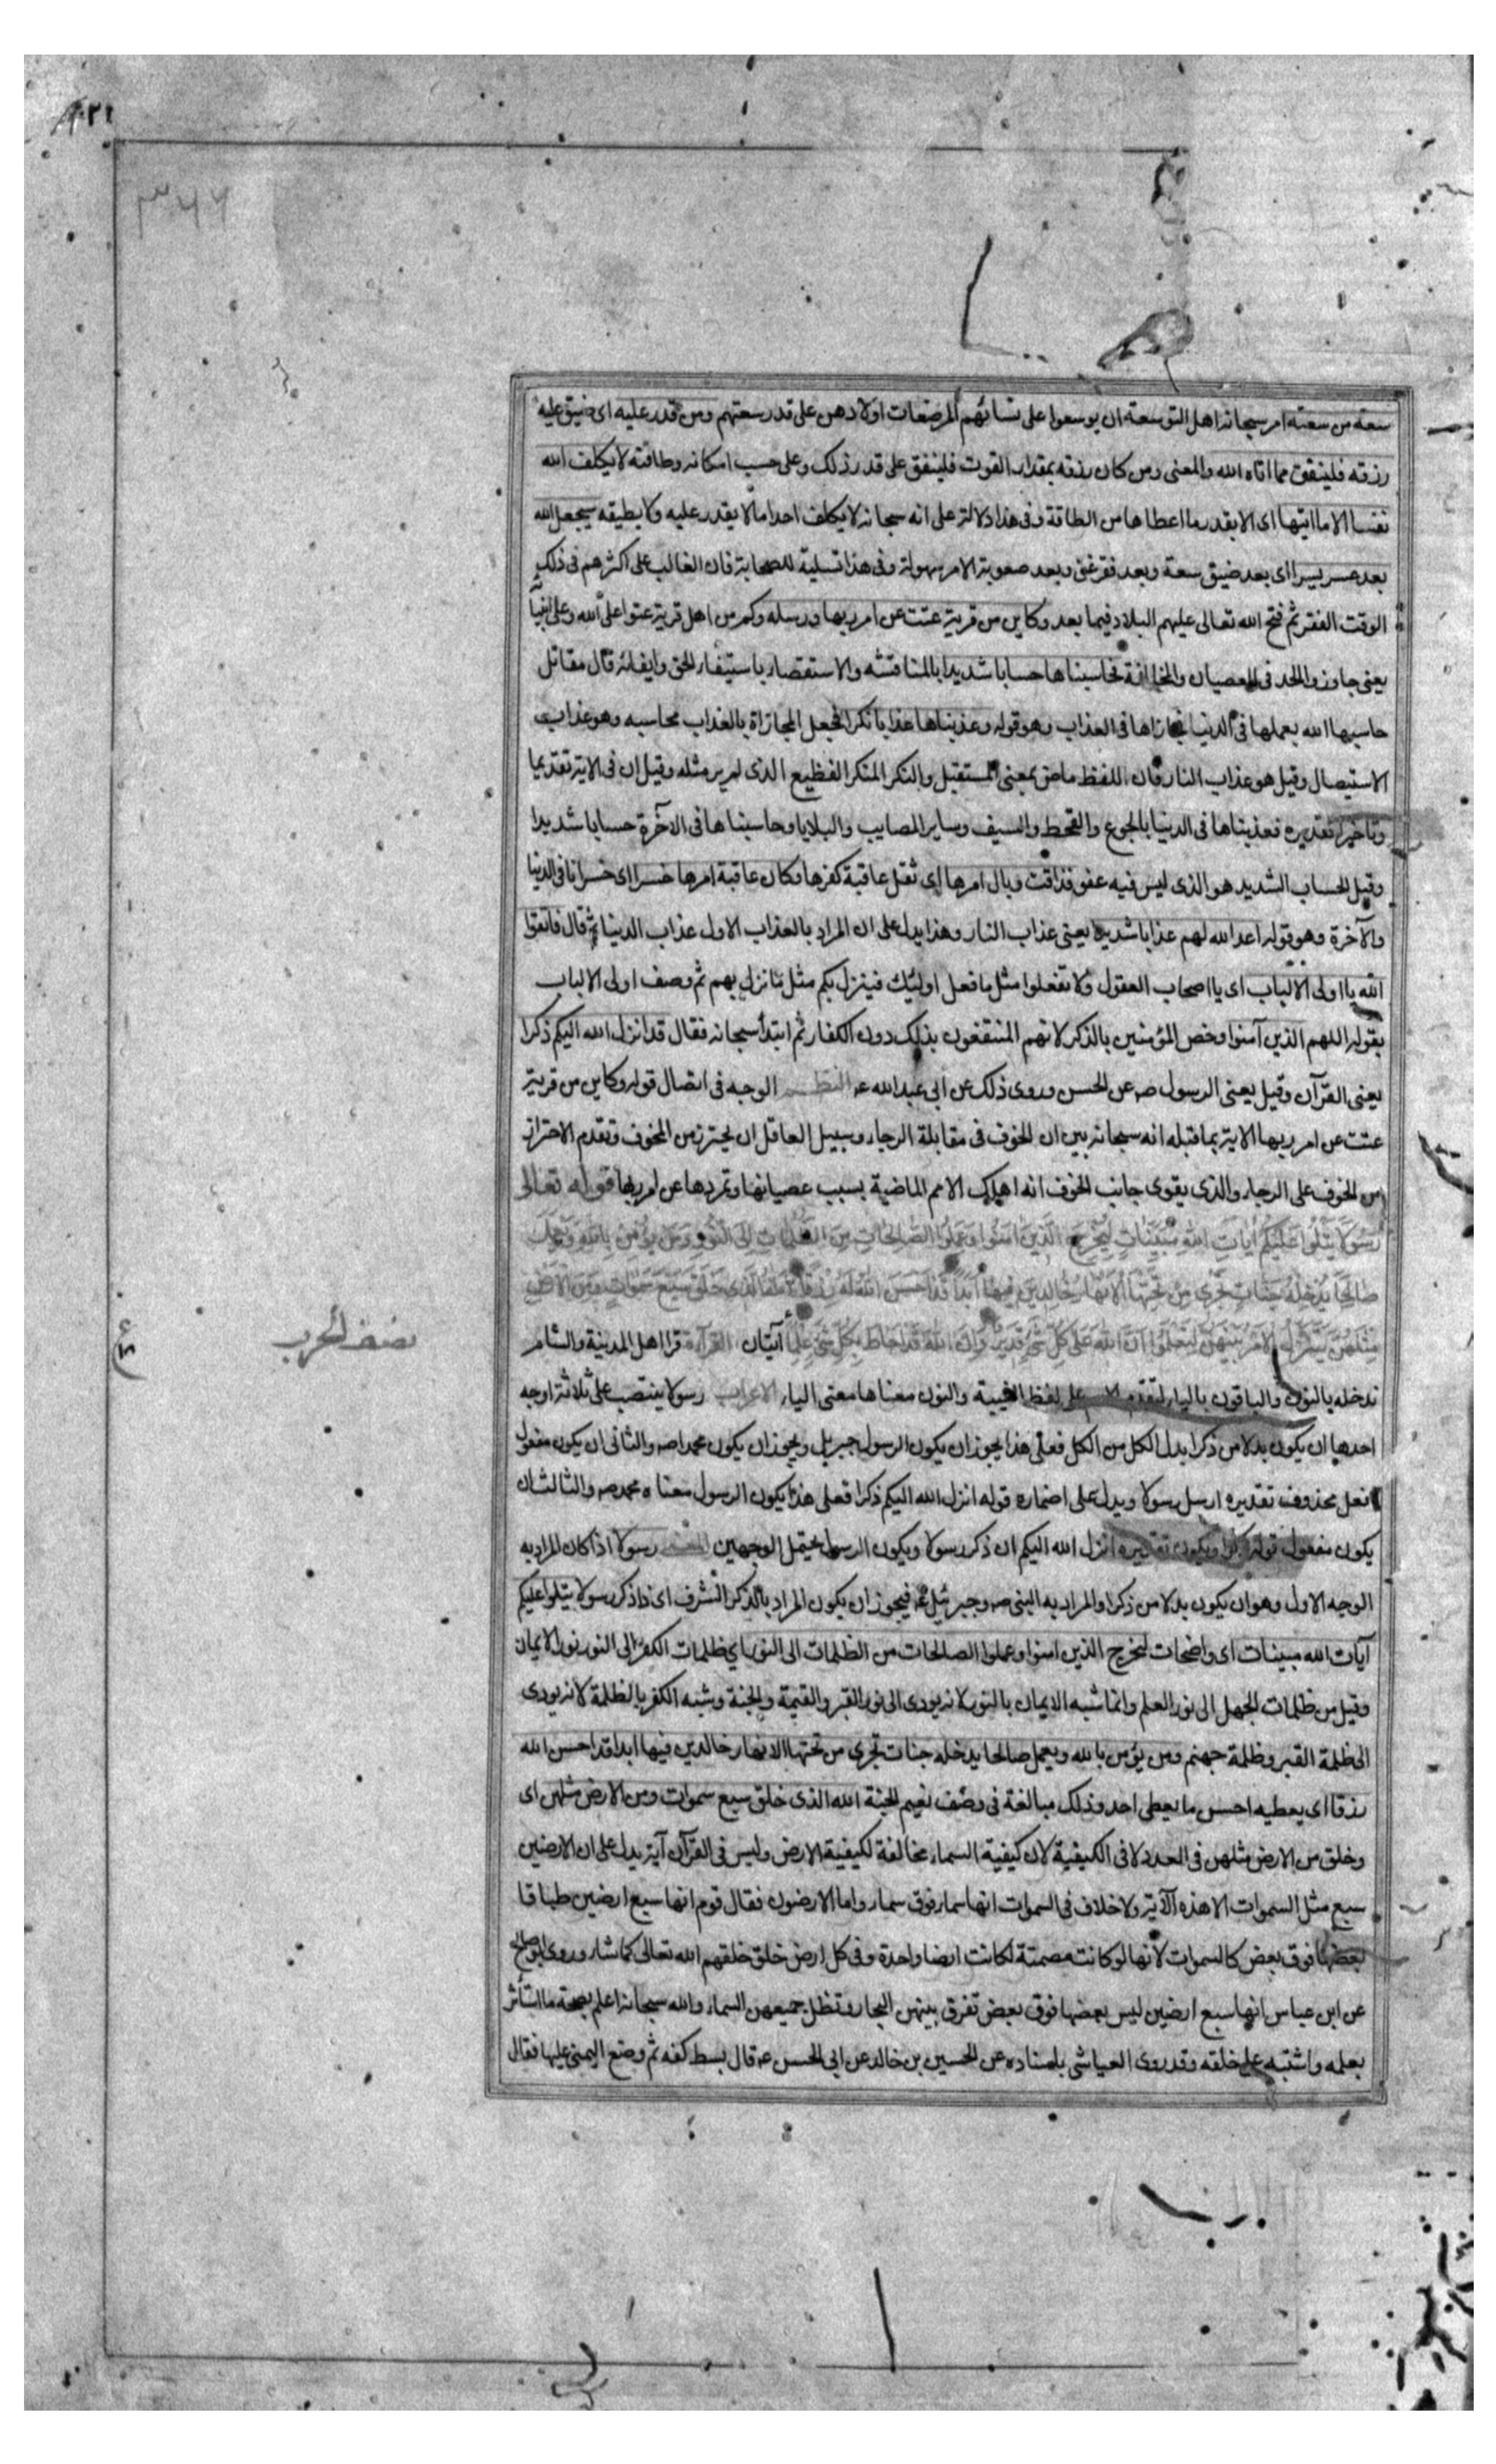 سعة من سعته امر سبحانه اهل التوسعة ان يوسعوا على نسائهم المرضعات اولادهن على قدر سعتهم ومن قدر عليه اى ضيق عليه
رزقه فلينفق مما اتاه الله والمعنى ومن كان رزقه بمقدار القوت فلينفق على قدر ذلك وعلى حسب امكانه وطاقته لا يكلف الله
نفسا الا ما اتيها اى الا بقدر ما اعطاها من الطاقة وفى هذا دلالة على انه سبحانه لا يكلف احدا ما لا يقدر عليه ولا يطيقه سيجعل الله
بعد عسر يسرا اى بعد ضيق سعة وبعد فقر غنى وبعد صعوبة الامر سهولة وفى هذا تسلية للصحابة فان الغالب على اكثرهم فى ذلك
الوقت الفقر ثم فتح الله تعالى عليهم البلاد فيما بعد وكاين من قرية عتت عن امر ربها ورسله وكم من اهل قرية عتوا على الله وعلى انبيآ
يعنى جاوزوا الحد فى العصيان والمخالفة فحاسبناها حسابا شديدا بالمناقشه والاستقصار باستيفاء الحق وايفائه قال مقاتل
حاسبها الله بعملها فى الدنيا فجازاها فى العذاب وهو قوله وعذبناها عذابا نكرا فجعل المجازاة بالعذاب محاسبه وهو عذاب
الاستيصال وقيل هو عذاب النار فان اللفظ ماض بمعنى المستقبل والنكر المنكر الفظيع الذى لم ير مثله وقيل ان فى الاية تقديما
وتاخيرا تقديره فعذبناها فى الدنيا بالجوع والقحط والسيف وساير المصايب والبلايا وحاسبناها فى الآخرة حسابا شديدا
وقيل الحساب الشديد هو الذى ليس فيه عفو فذاقت وبال امرها اى ثقل عاقبة كفرها وكان عاقبة امرها خسرا اى خسرانا فى الدنيا
والآخرة وهو قوله اعد الله لهم عذابا شديدا يعنى عذاب النار وهذا يدل على ان المراد بالعذاب الاول عذاب الدنيا ثم قال فاتقوا
الله يا اولى الالباب اى يا اصحاب العقول ولا تفعلوا مثل ما فعل اولئك فينزل بكم مثل ما نزل بهم ثم وصف اولى الالباب
بقوله اللهم الذين آمنوا وخص المؤمنين بالذكر لانهم المنتفعون بذلك دون الكفار ثم ابتدأ سبحانه فقال قد انزل الله اليكم ذكرا
يعنى القرآن وقيل يعنى الرسول صه عن الحسن وروى ذلك عن ابى عبدالله عه النظم الوجه فى اتصال قوله وكاين من قرية
عتت عن امر ربها الاية بما قبله انه سبحانه بين ان الخوف فى مقابلة الرجاء وسبيل العاقل ان يحترز من المخوف وتقدم الاحتراز
من الخوف على الرجاء والذى يقوى جانب الخوف انه اهلك الامم الماضية بسبب عصيانها وتمردها عن امر ربها قوله تعالى
رسولا يتلوا عليكم ايات الله مبينات ليخرج الذين امنوا وعملوا الصالحات من الظلمات الى النور ومن يؤمن بالله ويعمل
صالحا يدخله جنات تجرى من تحتها الانهار خالدين فيها ابدا قد احسن الله له رزقا الله الذى خلق سبع سموات ومن الارض
مثلهن يتنزل الامر بينهن لتعلموا ان الله على كل شئ قدير وان الله قد احاط بكل شئ علما آيتان القرآءة قرا اهل المدينة والشام
ندخله بالنون والباقون بالياء لتقدم الاسم على لفظ الغيبة والنون معناها معنى الياء الاعراب رسولا ينتصب على ثلاثة اوجه
احدها ان يكون بدلا من ذكرا بدل الكل من الكل فعلى هذا يجوز ان يكون الرسول جبريل ويجوز ان يكون محمدا صه والثانى ان يكون مفعول
فعل محذوف تقديره ارسل رسولا ويدل على اضماره قوله انزل الله اليكم ذكرا فعلى هذا يكون الرسول معناه محمد صه والثالث ان
يكون مفعول قوله ذكرا ويكون تقديره انزل الله اليكم ان ذكر رسولا ويكون الرسول يحتمل الوجهين المعنى رسولا اذا كان المراد به
الوجه الاول وهو ان يكون بدلا من ذكرا والمراد به النبى صه وجبرئيل عه فيجوز ان يكون المراد بالذكر الشرف اى ذا ذكر رسولا يتلوا عليكم
آيات الله مبينات اى واضحات ليخرج الذين امنوا وعملوا الصالحات من الظلمات الى النور اى ظلمات الكفر الى النور نور الايمان
وقيل من ظلمات الجهل الى نور العلم وانما شبه الايمان بالنور لانه يودى الى نور القبر والقيمة والجنة وشبه الكفر بالظلمة لانه يودى
الى ظلمة القبر وظلمة جهنم ومن يؤمن بالله ويعمل صالحا يدخله جنات تجرى من تحتها الانهار خالدين فيها ابدا قد احسن الله
رزقا اى يعطيه احسن ما يعطى احد وذلك مبالغة فى وصف نعيم الجنة الله الذى خلق سبع سموات ومن الارض مثلهن اى
وخلق من الارض مثلهن فى العدد لا فى الكيفية لان كيفية السماء مخالفة لكيفية الارض وليس فى القرآن آية يدل على ان الارضين
سبع مثل السموات الا هذه الآية ولا خلاف فى السموات انها سماء فوق سماء واما الارضون فقال قوم انها سبع ارضين طباقا
بعضها فوق بعض كالسموات لانها لو كانت مصمتة لكانت ارضا واحدة وفى كل ارض خلق خلقهم الله تعالى كما شاء وروى ابو صالح
عن ابن عباس انها سبع ارضين ليس بعضها فوق بعض تفرق بينهن البحار وتظل جميعهن السماء والله سبحانه اعلم بصحة ما استأثر
بعلمه واشتبه على خلقه وقد روى العياشى باسناده عن الحسين بن خالد عن ابى الحسن عه قال بسط كفه ثم وضع اليمنى عليها فقال
نصف الحزب